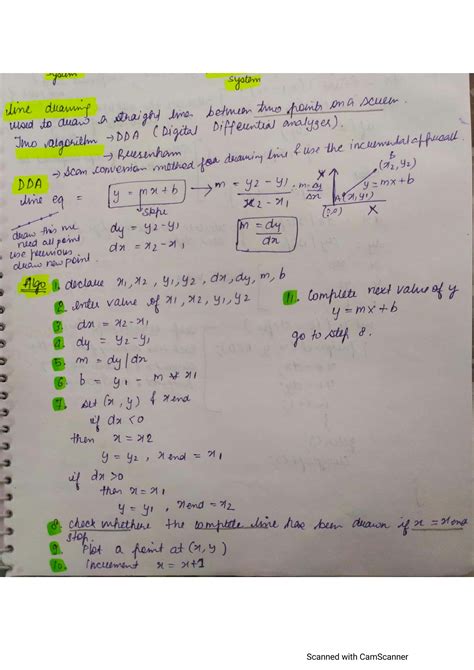 system
system
line drawing
used to draw a straight line between two points on a screen.
Two algorithm → DDA (Digital Differential analyzer).
→ Bresenham
DDA → Scan conversion method for drawing line & use the incremental approach
line eq = y = mx + b → m = y2 - y1 / x2 - x1 m = dy / dx
slope
B (x2, y2)
y = mx + b
A (x1, y1)
(0,0) X
draw this line
need all point
use previous
draw new point.
dy = y2 - y1
dx = x2 - x1
m = dy / dx
Algo 1. declare x1, x2, y1, y2, dx, dy, m, b
2. enter value of x1, x2, y1, y2
3. dx = x2 - x1
4. dy = y2 - y1
5. m = dy/dx
6. b = y1 - m * x1
7. set (x, y) & xend
if dx < 0
then x = x2
y = y2, xend = x1
if dx > 0
then x = x1
y = y1, xend = x2
8. check whethere the complete line has been drawn if x = xend
stop.
9. Plot a point at (x, y)
10. Increment x = x+1
11. Complete next value of y
y = mx + b
go to step 8.
Scanned with CamScanner